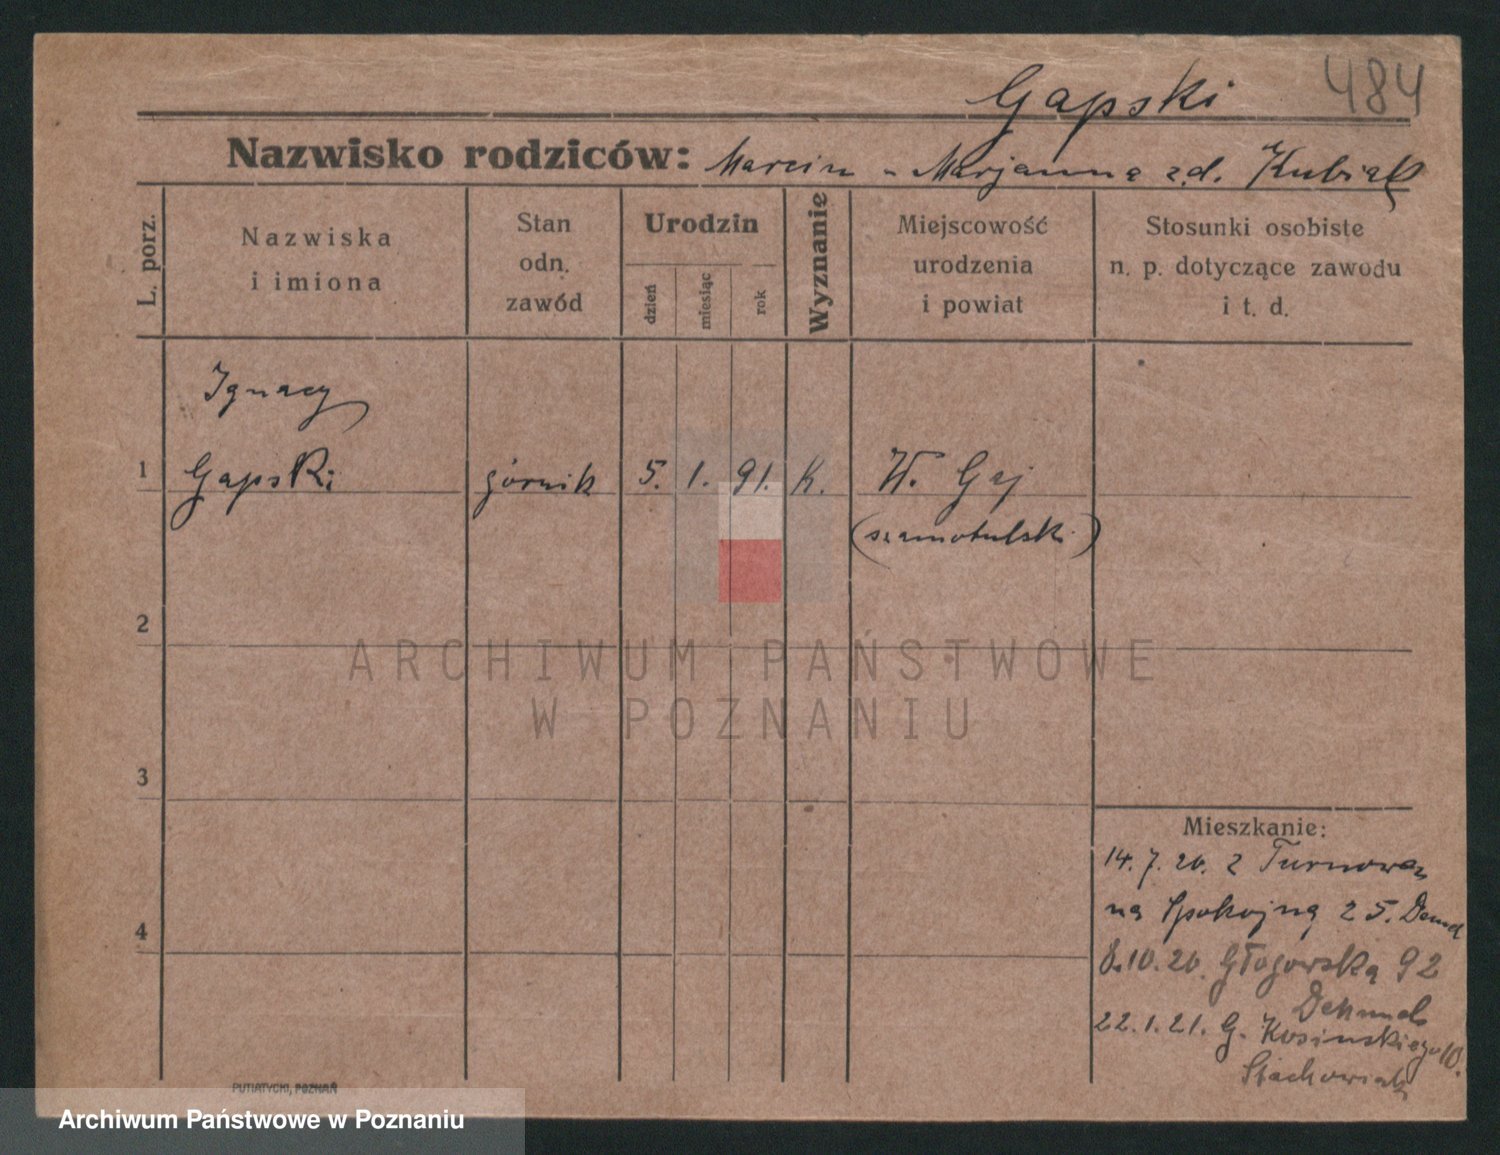 Gapski 484
Nazwisko rodziców: Marcin - Marjanna z d. Kubiak
L. porz.
Nazwiska
i imiona
Stan
odn.
zawód
Urodzin
dzień
miesiąc
rok
Wyznanie
Miejscowość
urodzenia
i powiat
Stosunki osobiste
n. p. dotyczące zawodu
i t. d.
Ignacy
1 Gapski górnik 5. 1. 91. K. W. Gaj
(szamotulski)
2
ARCHIWUM PAŃSTWOWE
W POZNANIU
3
Mieszkanie:
14. 7. 20. z
na Spokojną 25.
4
8.10.20. Głogowską 92
22.1.21. G. Kosińskiego 10.
Stachowiak
PUTIATYCKI, POZNAŃ
Archiwum Państwowe w Poznaniu